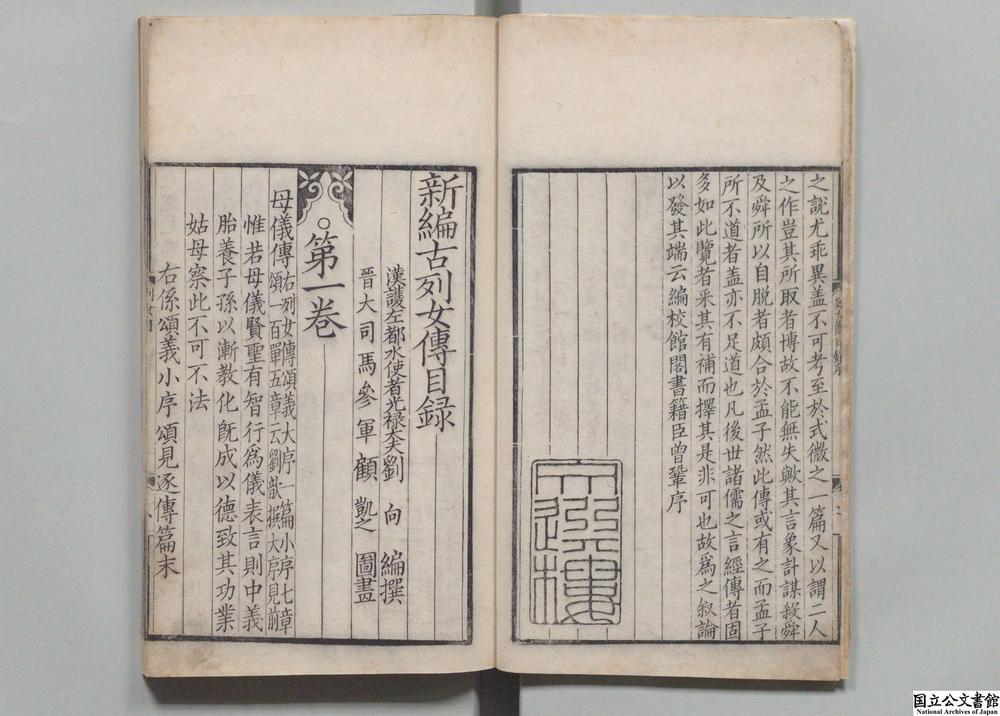 之說尤乖異盖不可考至於式微之一篇又以謂二人
之作豈其所取者博故不能無失歟其言象計謀殺舜
及舜所以自脫者頗合於孟子然此傳或有之而孟子
所不道者盖亦不足道也凡後世諸儒之言經傳者固
多如此覽者采其有補而擇其是非可也故爲之叙論
以發其端云編校館閣書籍臣曾鞏序
新編古列女傳目録
漢護左都水使者光禄大夫劉向編撰
晉大司馬參軍顧凱之圖畫
第一卷
母儀傳
右列女傳頌義大序一篇小序七章
頌一百單五章云劉歆撰大序見前
惟若母儀賢聖有智行爲儀表言則中義
胎養子孫以漸教化旣成以德致其功業
姑母察此不可不法
右係頌義小序頌見逐傳篇末
国立公文書館
National Archives of Japan